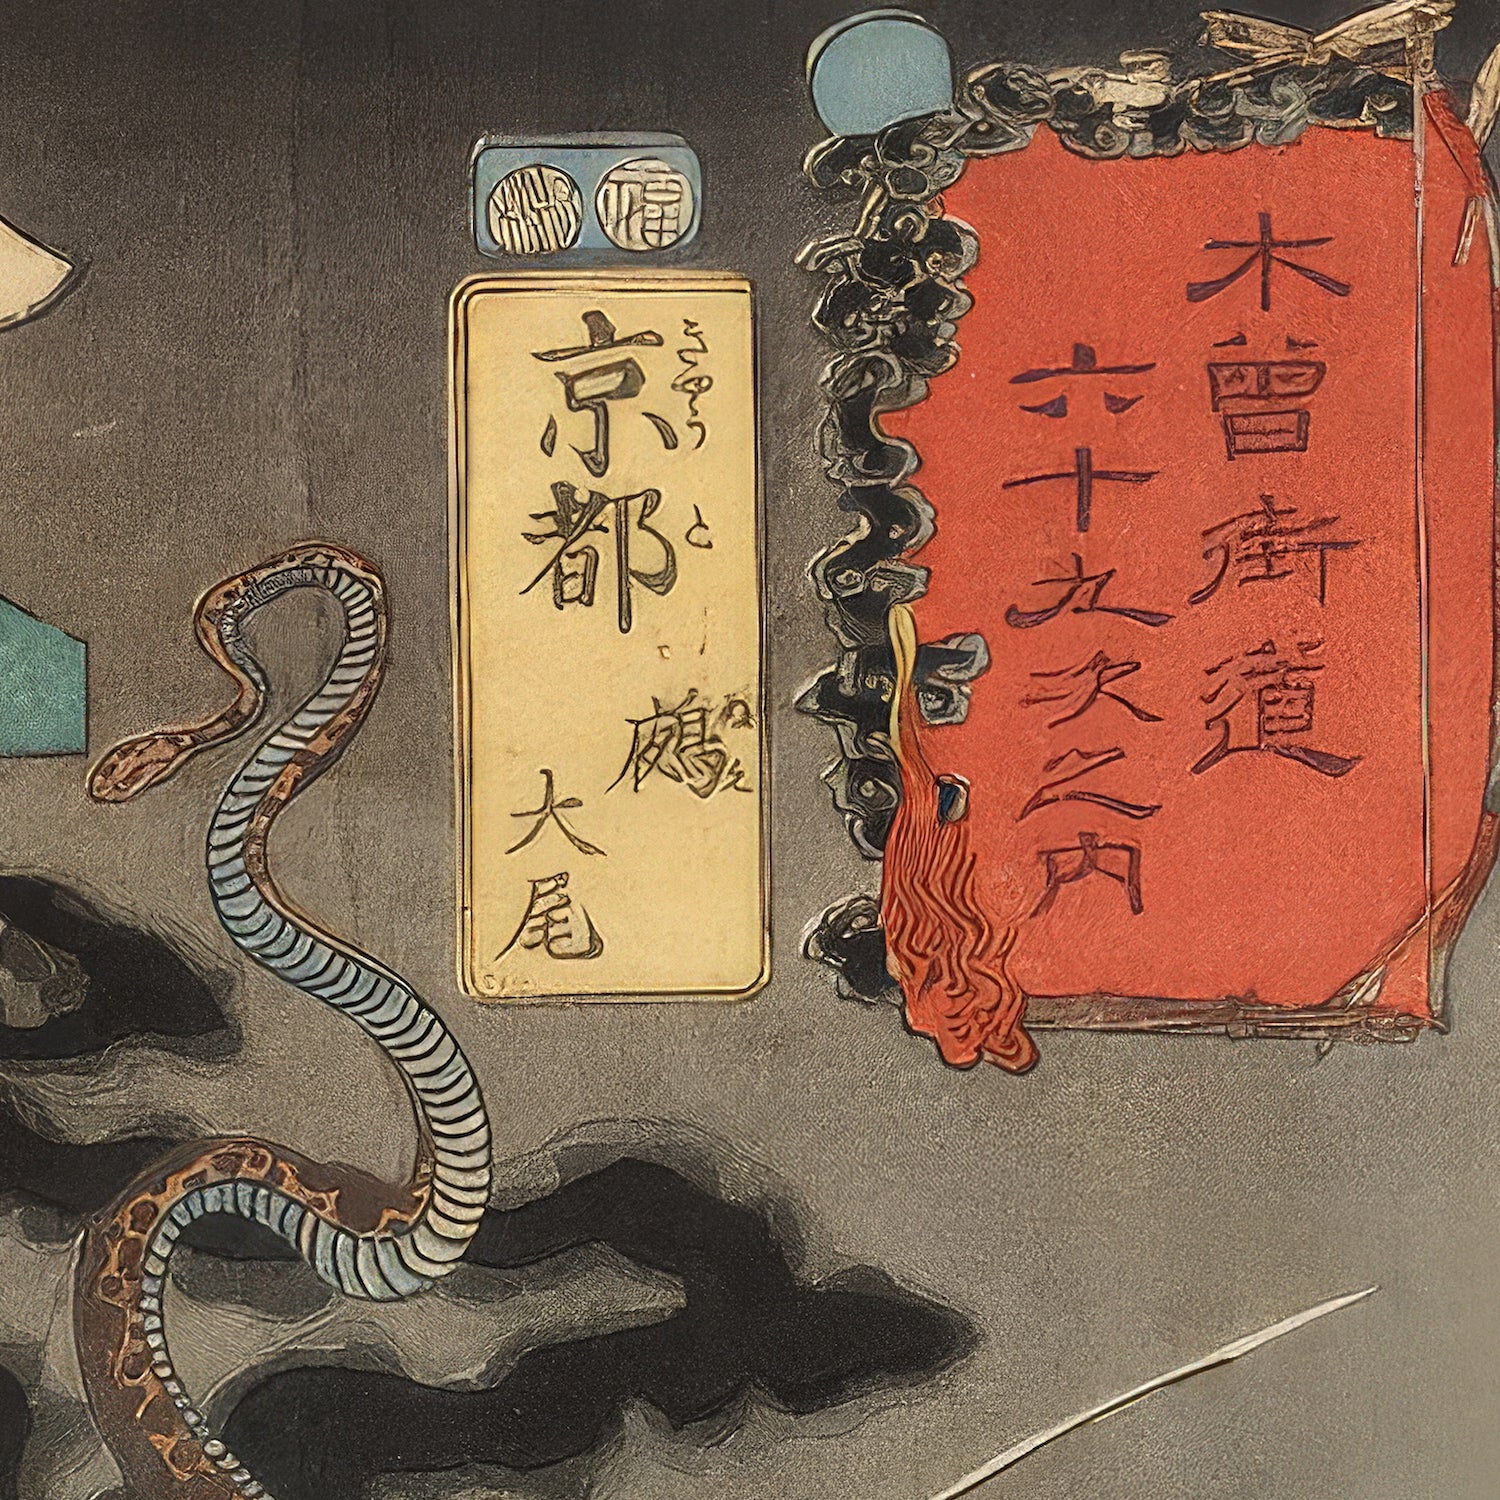 木曽街道
六十九次之内
京都
きやうと
鵺
大尾
福